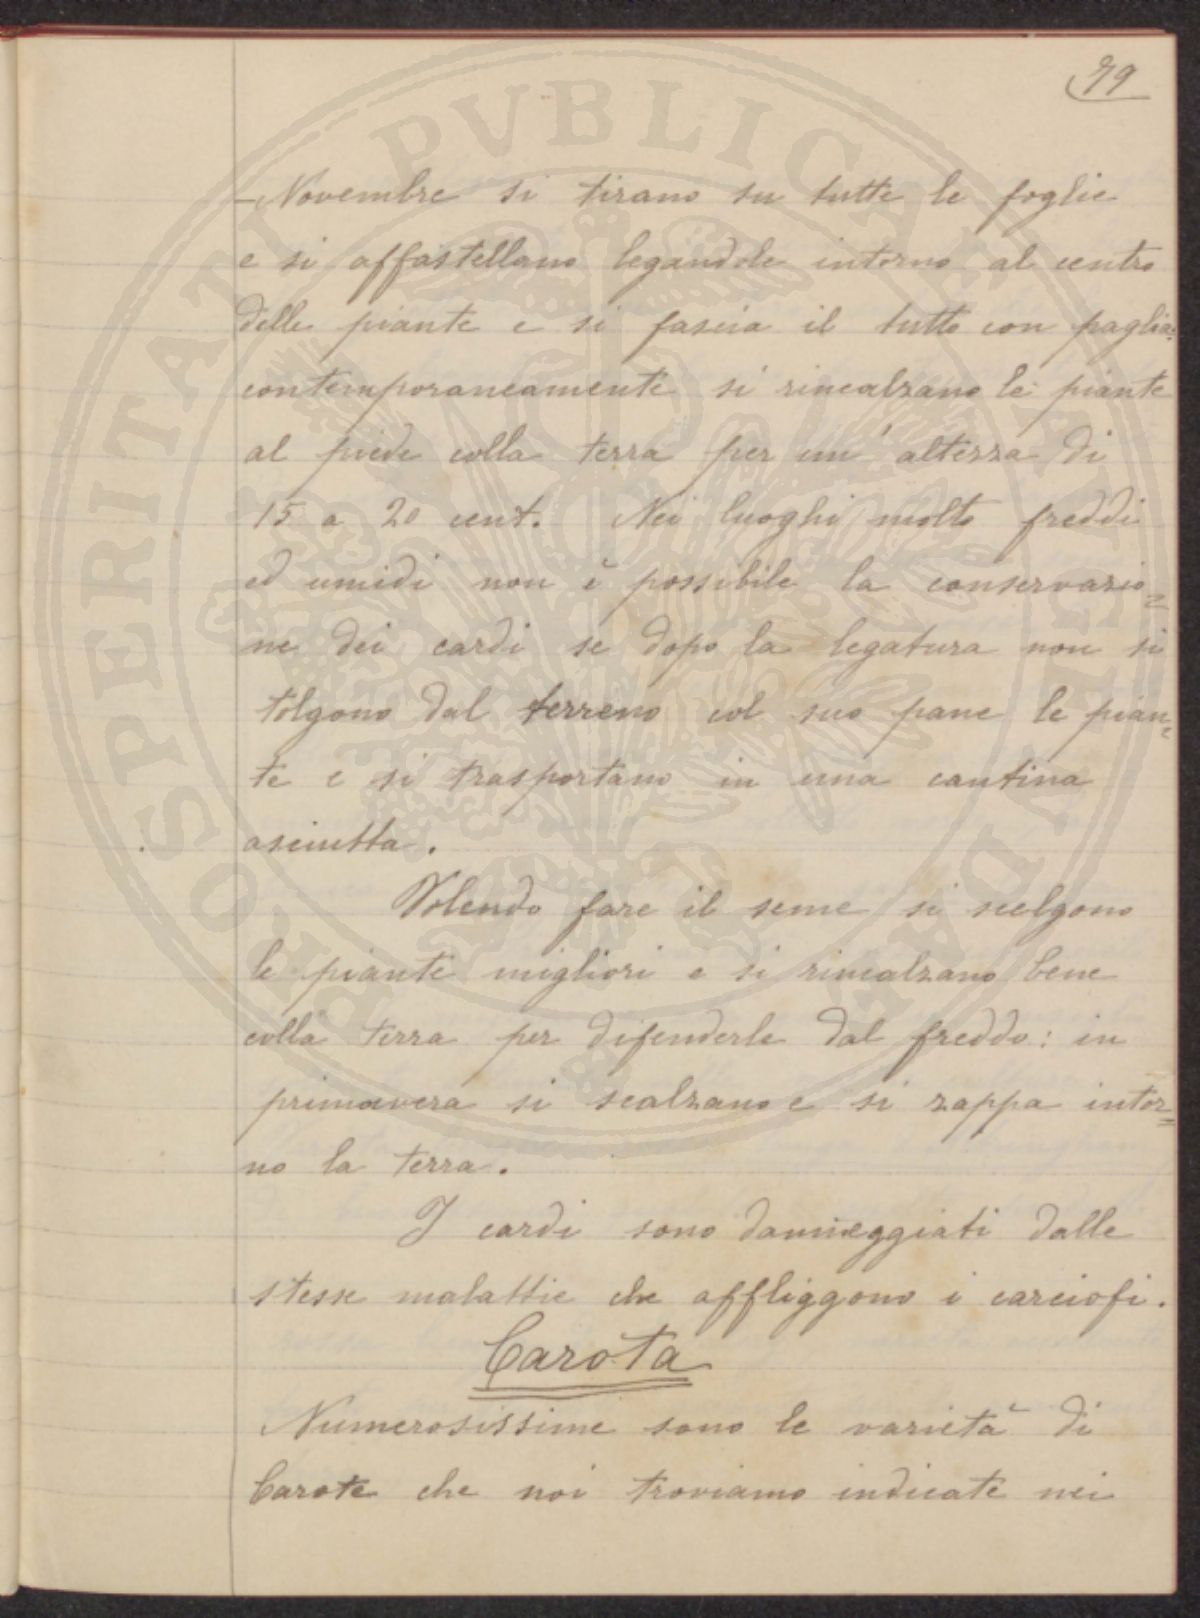 79
Novembre si tirano su tutte le foglie
e si affastellano legandole intorno al centro
delle piante e si fascia il tutto con paglia:
contemporaneamente si rincalzano le piante
al piede colla terra per un' altezza di
15 a 20 cent. Nei luoghi molto freddi
ed umidi non è possibile la conservazio=
ne dei cardi se dopo la legatura non si
tolgono dal terreno col suo pane le pian=
te e si trasportano in una cantina
asciutta.
Volendo fare il seme si scelgono
le piante migliori e si rincalzano bene
colla terra per difenderle dal freddo: in
primavera si scalzano e si zappa intor=
no la terra.
I cardi sono danneggiati dalle
stesse malattie che affliggono i carciofi.
Carota
Numerosissime sono le varietà di
Carote che noi troviamo indicate nei
PROSPERITATI PVBLICAE AVGENDAE